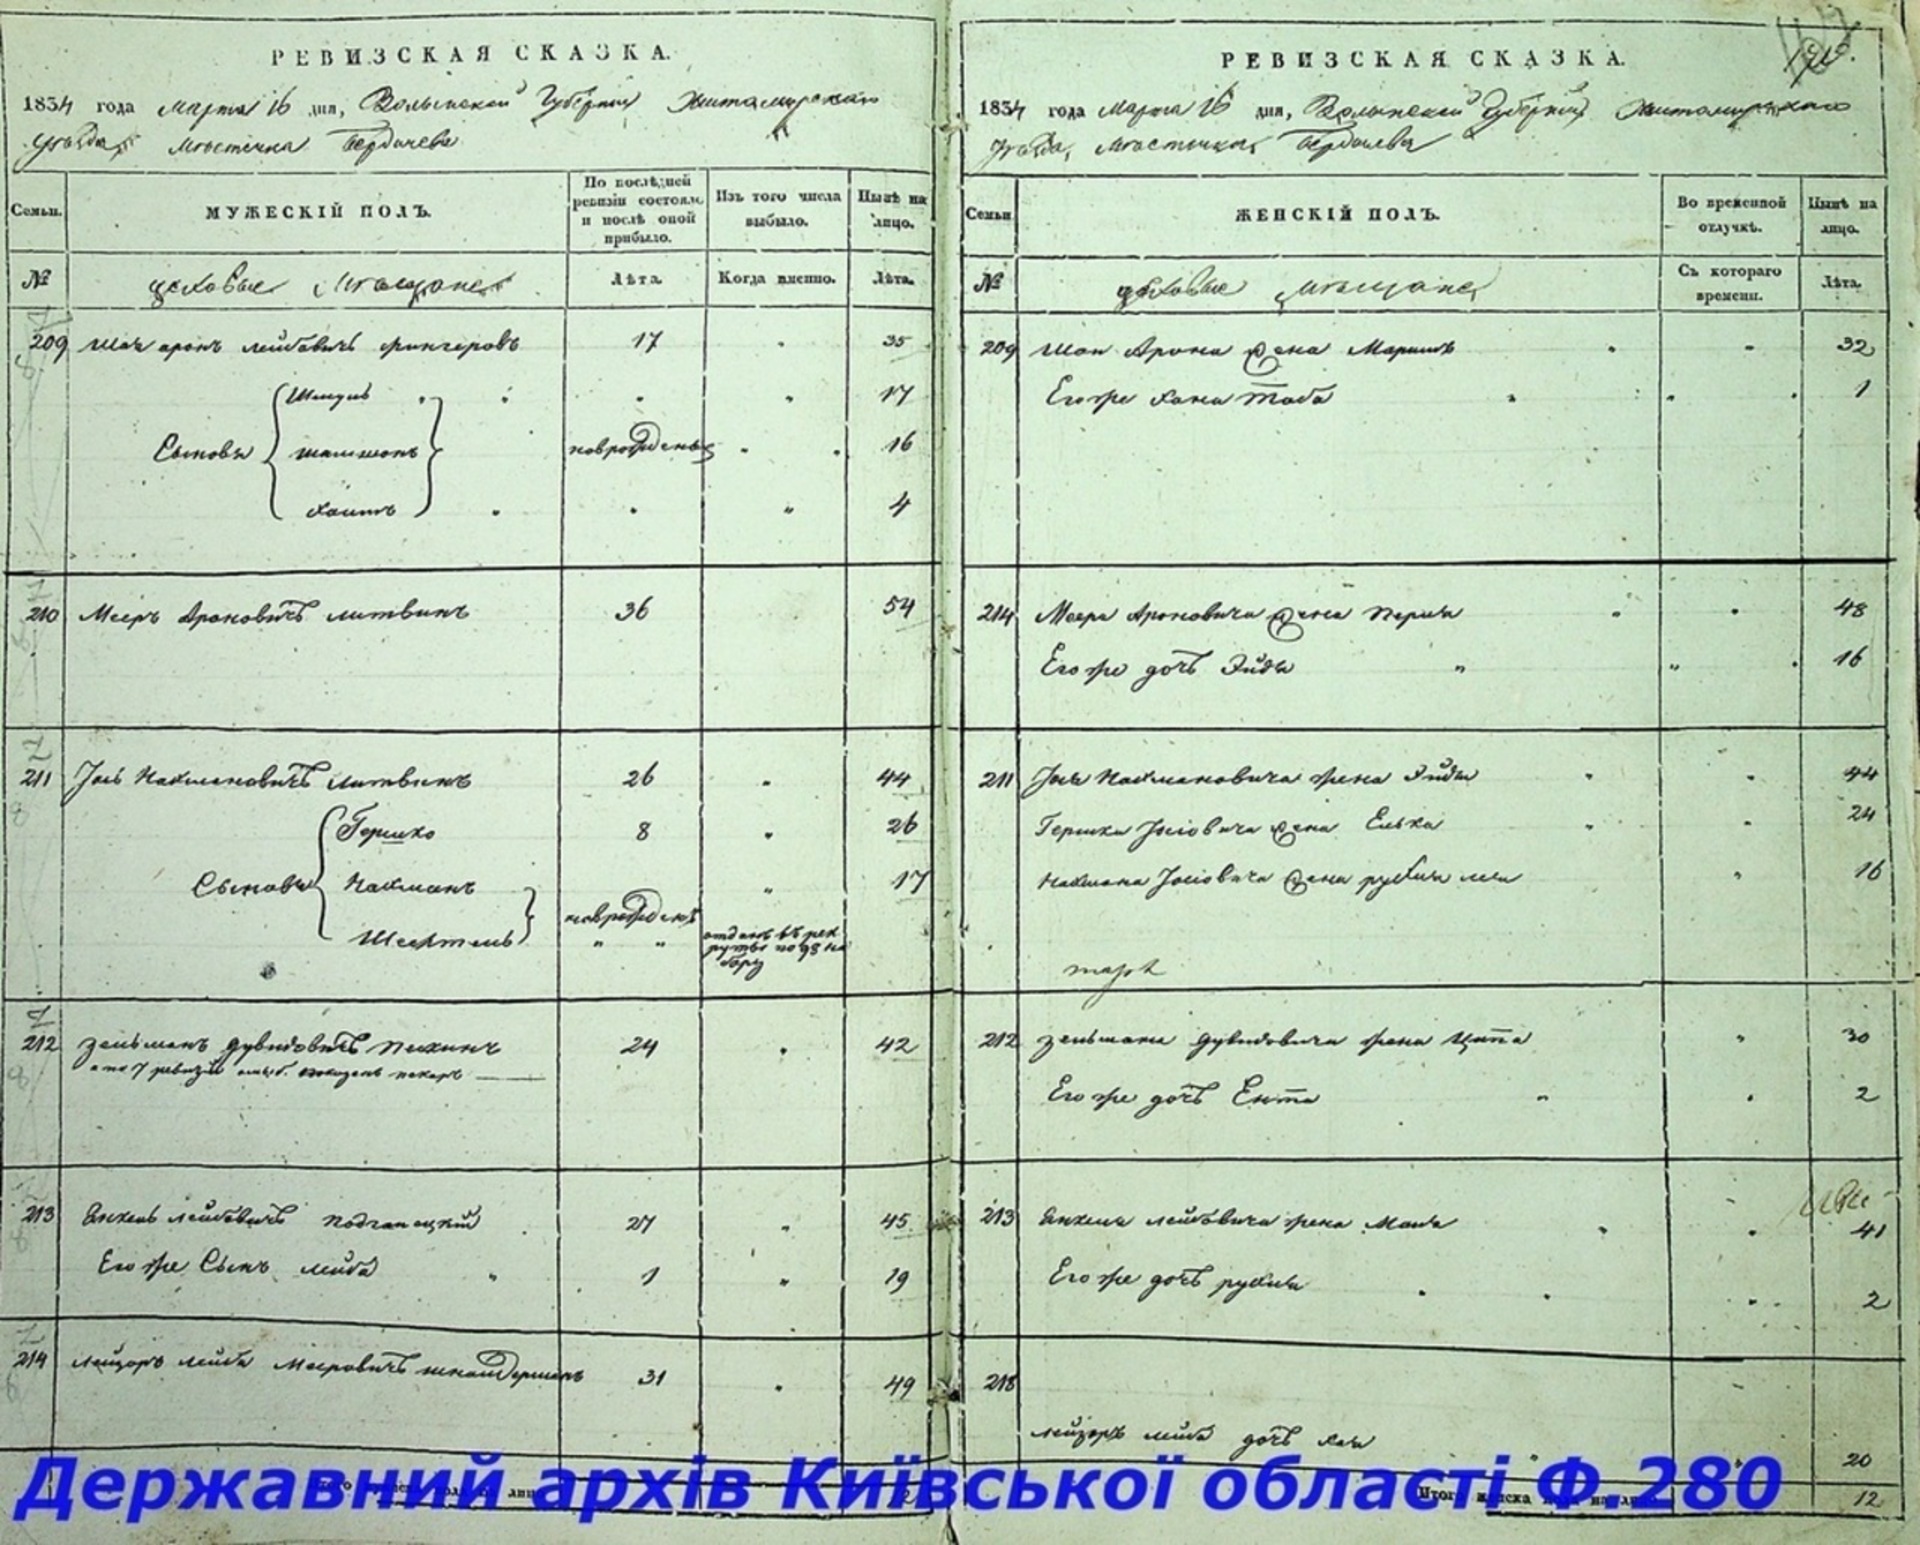 РЕВИЗСКАЯ СКАЗКА.
1834 года марта 16 дня, Волынской Губернии Житомирского
уезда, местечка Бердичева
Семьи.
МУЖЕСКІЙ ПОЛЪ.
По послѣдней ревизіи состояло и послѣ оной прибыло.
Изъ того числа выбыло.
Нынѣ на лицо.
№
цеховые мещане
Лѣта.
Когда именно.
Лѣта.
209 Шая аронъ лейбовичъ фингеровъ 17 35
Шмуль 17
Сыновья шлимонъ новорожденные 16
Хаимъ 4
210 Мееръ Ароновичъ литвинъ 36 54
211 Іось Нахмановичъ литвинъ 26 44
Гершко 8 26
Сыновья Нахманъ 17
новрожден
Шехтель отданъ въ рек
руты по 93 на
бору
212 Зельманъ дувидовичъ 24 42
а по 7 ревизіи
213 Янкель лейбовичъ Подганецкій 27 45
Его же Сынъ лейба 1 19
214 лейзоръ лейба Мееровичъ 31 49
РЕВИЗСКАЯ СКАЗКА.
1834 года марта 16 дня, Волынской Губернии Житомирского
уезда, местечка Бердичева
Семьи.
ЖЕНСКІЙ ПОЛЪ.
Во временной отлучкѣ.
Нынѣ на лицо.
№
цеховые мещане
Съ котораго времени.
Лѣта.
209 Шаи Арона жена Маримъ 32
Его же Хана Тоба 1
214 Меера Ароновича жена Перля 48
Его же дочь Эйдя 16
211 Іося Нахмановича жена Эйдя 44
Гершка Іосіовича жена Элька 24
Нахмана Іосіовича жена рухля леи 16
212 Зельмана дувидовича жена Ципа 30
Его же дочь Ента 2
213 Янкеля лейбовича жена Маля 41
Его же дочь рухля 2
218
лейзоръ лейба дочь Хая 20
Итого женска пола на лицо 12
Державний архів Київської області Ф.280